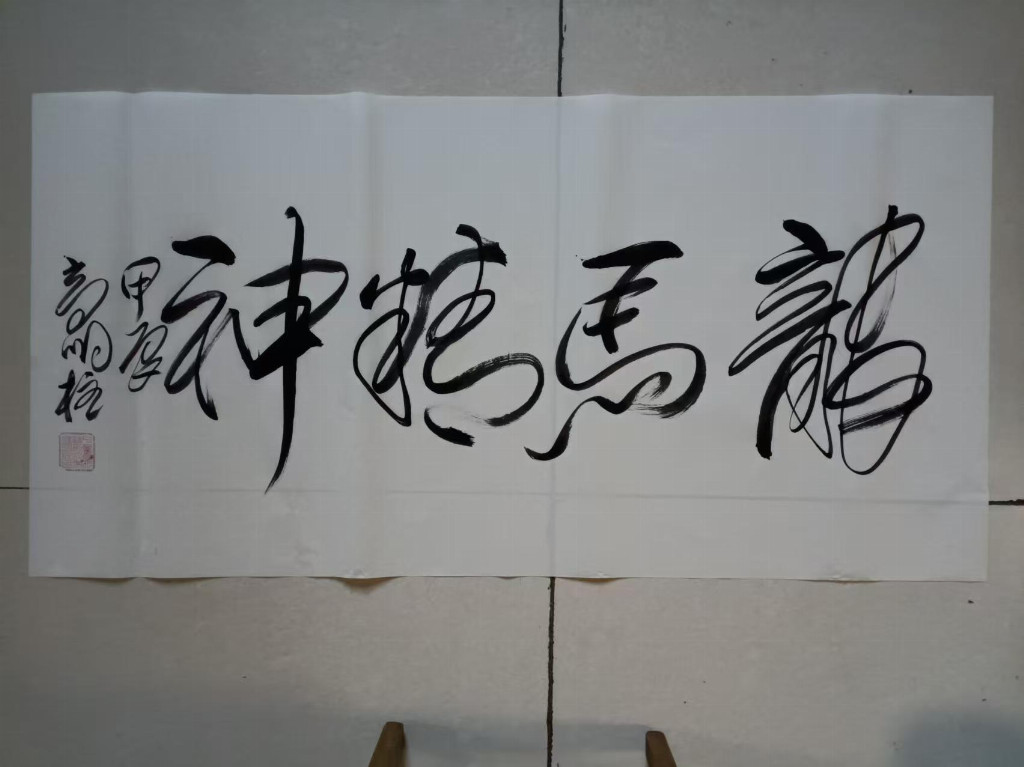 龍馬精神
甲辰
高明柱